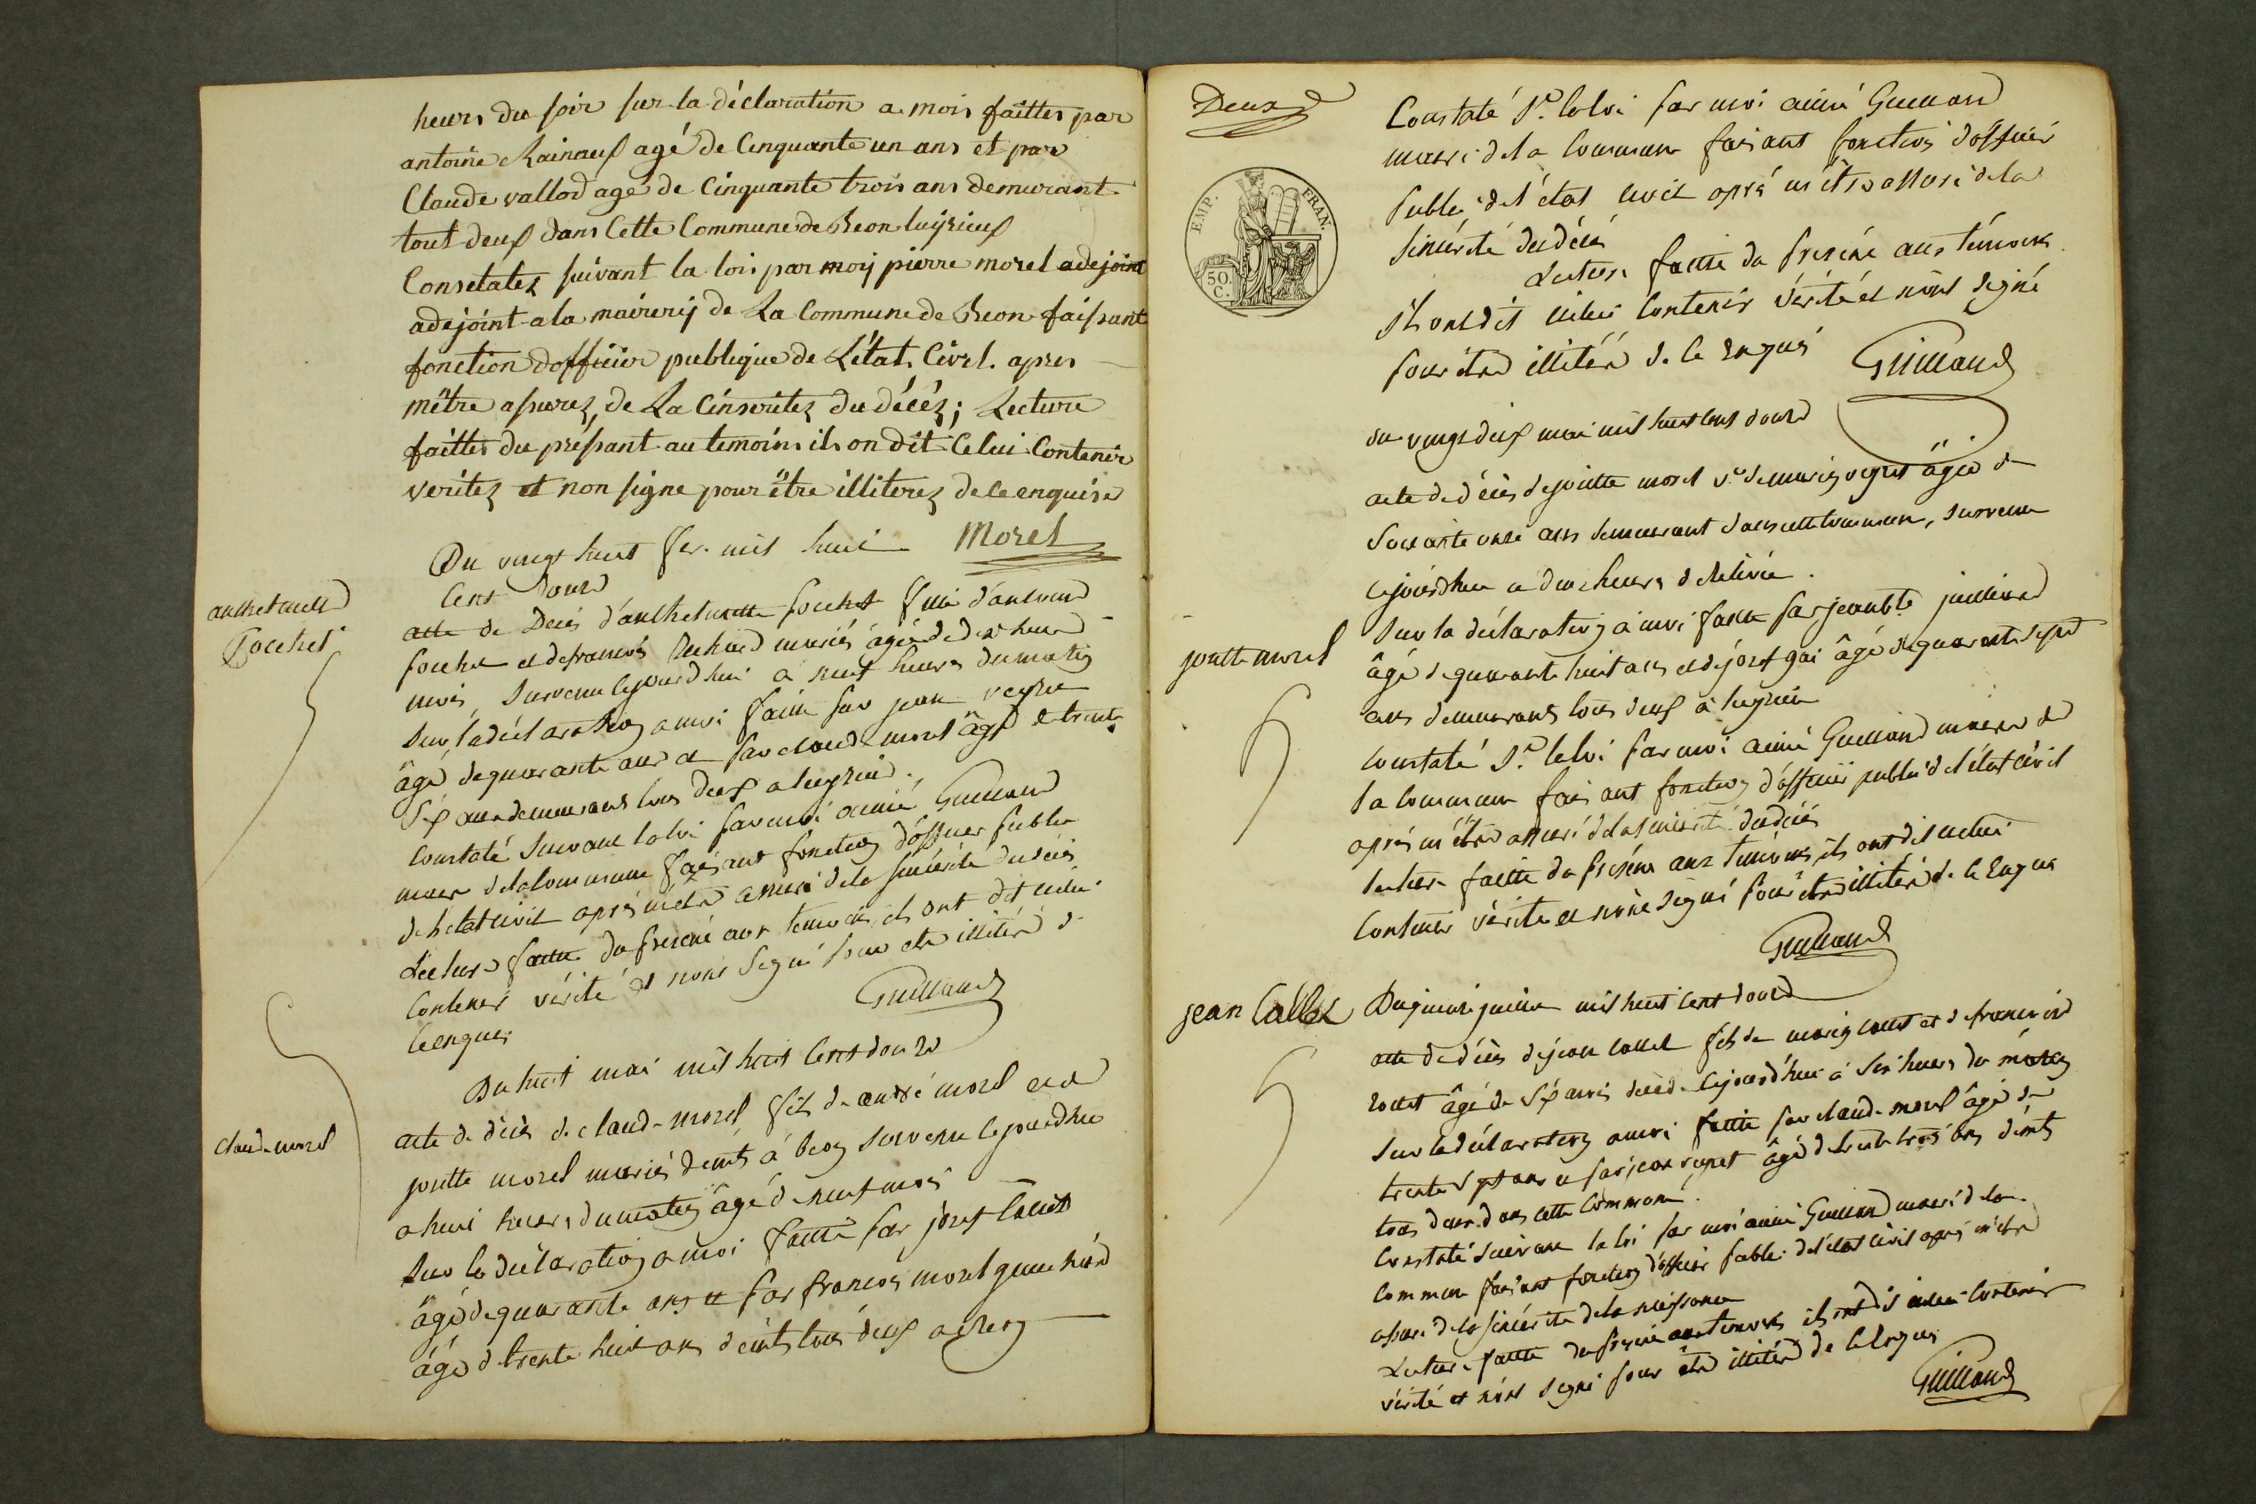 heurs du soir sur la déclaration a mois faittes par
antoine Rainauf agé de Cinquante un ans et par
Claude vallod agé de Cinquante trois ans demurant
tout deux dans Cette Commune de Beon luÿrieux
Consetatez suivant la loi par moÿ pierre morel adejoint
adejoint a la mairerij de La Commune de Beon faissant
fonction dofficier publique de L'état Civel. apres
mêtre assurez, de La Cinseritez du décéz; Lecture
faittes du préssant au temoins ils on dit Celui Contenir
veritez et non signe pour être illiterez de ce enquise
Morel
Du vingt huit fer. mil huit
Cent douze
anthelmette
Pochet
acte de Décés d'anthelmette pochet fille d'antoine
pochet et de françois mariés âgée de dix huit
mois, survenu cejourd'hui a neuf heures du matin
sur la déclaration a moi faitte par jean veyret
âgé de quarante ans et par claude morel âgé de trente
six ans demeurans tous deux a luyrieux.
Constaté suivant la loi par moi aimé Guillaud
maire de la commune faisant fonction d'officier public
de l'état civil après m'être assuré de la sincérité du décès
Lecture faitte du presené aux temoins ils ont dit celui
Contenir vérité et nons signé pour etre illitéré de
ce enquis
Guillaud
Du huit mai mil huit Cent douze
claude morel
acte de décès de claude morel fils de andré morel et de
josette morel mariés demts à beon survenu cejourdhui
a huit heures du matin âgé de neuf mois
Sur la déclaration a moi faitte par josef Callet
âgé de quarante ans et par francois morel
âgé de trente huit ans demts tous deux a beon
Deux
EMP. FRAN.
50.
C.
Constaté st. la loi par moi aimé Guillaud
maire de la commune faisant fonction d'officier
public de l'état civil après m'être assuré de la
sincérité du décès
Lecture faitte du presené aux témoins
Ils ont dit celui contenir vérité et nons signé
pour être illitéré de ce enquis
Guillaud
du vingt deux mai mil huit cent douze
acte de décès de josette morel ve. de marin veyret âgée de
soixante onze ans demeurant dans cette commune, survenu
cejourdhui a dix heures de
josette morel
Sur la déclaration a moi faitte par jean bte. juillerd
âgé de quarante huit ans et de josef gai âgé de quarante sept
ans demeurans tous deux à luyrieu
constaté st. la loi par moi aimé Guillaud maire de
la commune faisant fonction d'officier public de l'état civil
après m'être assuré de la sincérité du décès
lecture faitte du presené aux témoins ils ont dit celui
contenir vérité et nons signé pour être illitéré de ce enquis
Guillaud
jean Callet
Du juillet mil huit cent douze
acte de décès de jean callet fils de marin callet et de francoise
âgé de six mois décédé cejourd'hui à six heures du matin
sur la déclaration a moi faitte par claude morel âgé de
trente sept ans et par jean veyret âgé de trente trois ans demts
tous deux dans cette Commune.
Constaté suivant la loi par moi aimé Guillaud maire de la
Commune faisant fonction d'officier public de l'état civil après m'être
assuré de la sincérité de la naissance
Lecture faitte du presené aux temoins ils ont dit celui contenir
vérité et nons signé pour être illitéré de ce enquis
Guillaud